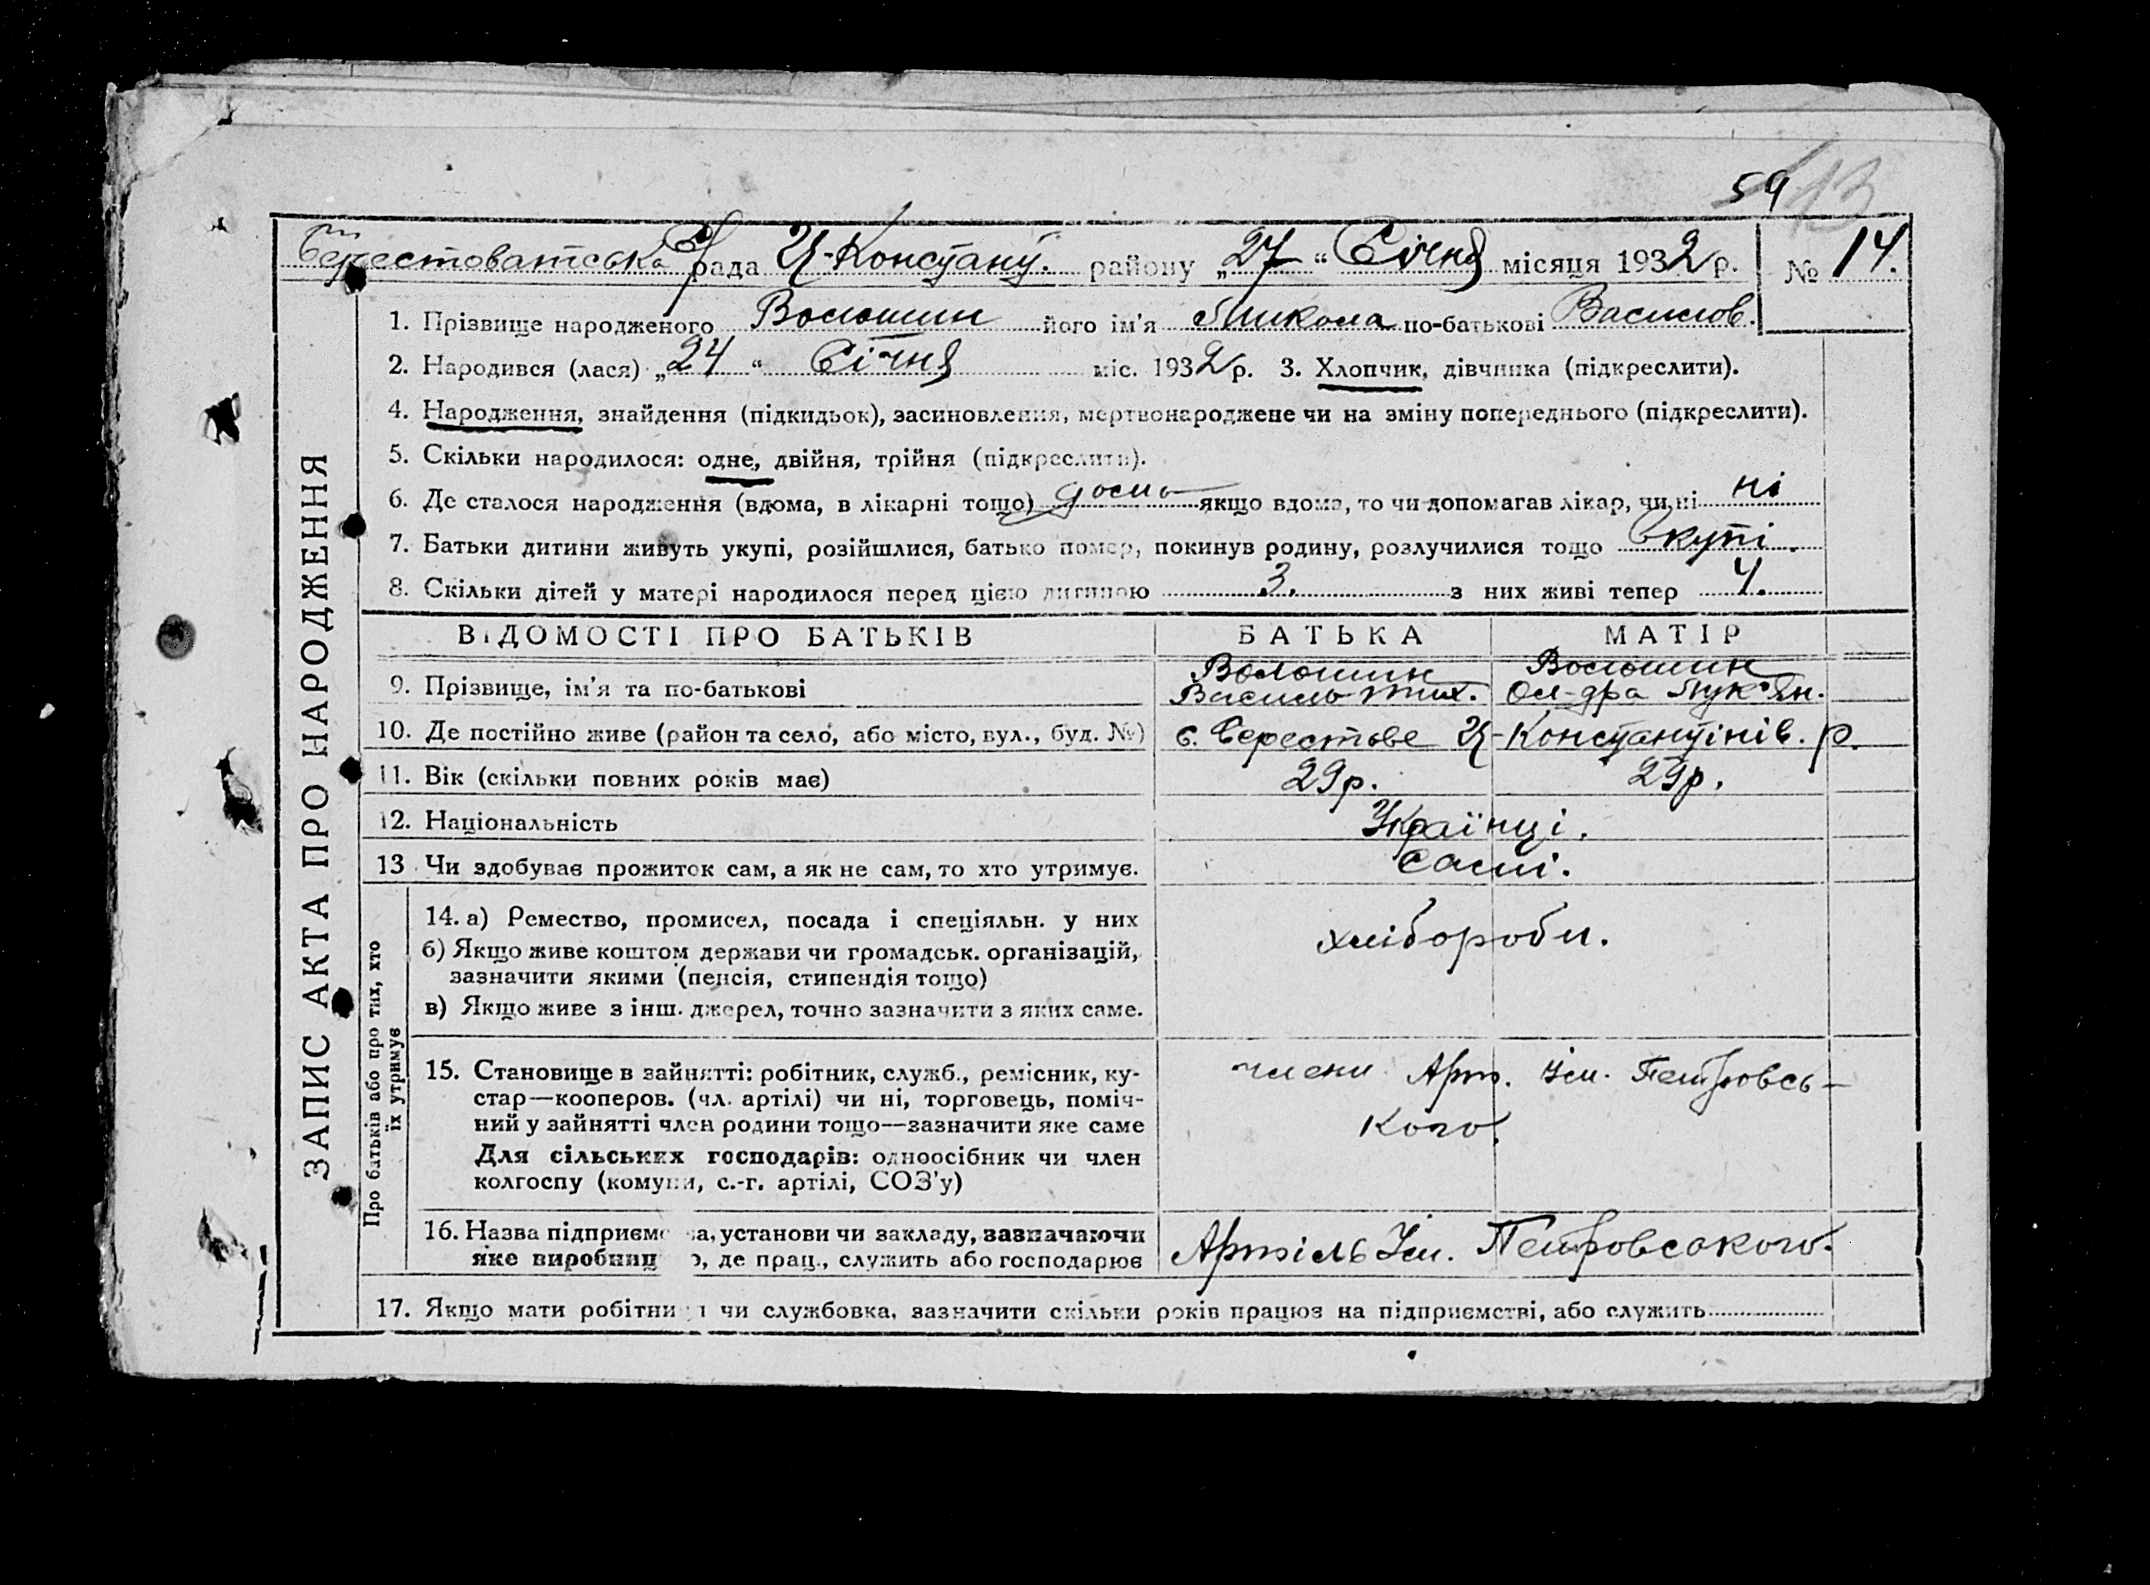 59 13
Берестоватська с/рада Ц-Констант. району „27“ Січня місяця 1932 р. № 14.
1. Прізвище народженого Волошин його ім'я Микола по-батькові Васильов.
2. Народився (лася) „24“ Січня міс. 1932 р. 3. Хлопчик, дівчинка (підкреслити).
4. Народження, знайдення (підкидьок), засиновлення, мертвонароджене чи на зміну попереднього (підкреслити).
5. Скільки народилося: одне, двійня, трійня (підкреслити).
6. Де сталося народження (вдома, в лікарні тощо) дома якщо вдома, то чи допомагав лікар, чи ні ні
7. Батьки дитини живуть укупі, розійшлися, батько помер, покинув родину, розлучилися тощо вкупі.
8. Скільки дітей у матері народилося перед цією дитиною 3. з них живі тепер 4.
ВІДОМОСТІ ПРО БАТЬКІВ БАТЬКА МАТІР
Волошин Волошин
9. Прізвище, ім'я та по-батькові Василь Тих. Ол-дра Лук'ян.
10. Де постійно живе (район та село, або місто, вул., буд. №) с. Берестове Ц-Константінів. р.
11. Вік (скільки повних років має) 29р. 29р.
12. Національність Українці.
13. Чи здобуває прожиток сам, а як не сам, то хто утримує. Самі.
14. а) Ремество, промисел, посада і спеціяльн. у них
хлібороби.
б) Якщо живе коштом держави чи громадськ. організацій,
зазначити якими (пенсія, стипендія тощо)
в) Якщо живе з інш. джерел, точно зазначити з яких саме.
15. Становище в зайнятті: робітник, служб., ремісник, ку- члени Арт. Ім. Петровсь-
стар—кооперов. (чл. артілі) чи ні, торговець, поміч-
ний у зайнятті член родини тощо—зазначити яке саме кого.
Для сільських господарів: одноосібник чи член
колгоспу (комуни, с.-г. артілі, СОЗ'у)
16. Назва підприєм ва, установи чи закладу, зазначаючи
яке виробниц о, де прац., служить або господарює Артіль Ім. Петровського.
17. Якщо мати робітни я чи службовка, зазначити скільки років працює на підприємстві, або служить
ЗАПИС АКТА ПРО НАРОДЖЕННЯ
Про батьків або про тих, хто
їх утримує